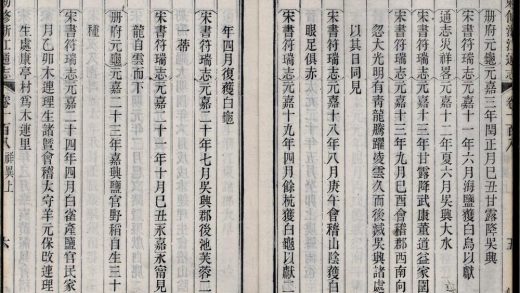 册府元龜元嘉三年閏正月己丑甘露降
宋書符瑞志元嘉十一年六月海鹽獲白烏以獻
通志災祥畧元嘉十二年夏六月吳興大水
宋書符瑞志元嘉十三年甘露降武康董道益家園
宋書符瑞志元嘉十三年九月己酉會稽郡西南向
忽大光明有青龍騰躍凌雲久而後滅吳興諸處
以其日同見
宋書符瑞志元嘉十八年八月庚午會稽山陰獲白
眼足俱赤
宋書符瑞志元嘉十九年四月餘杭獲白龜以獻二
年四月復獲白龜
宋書符瑞志元嘉二十年七月吳興郡後池芙蓉二
一蒂
宋書符瑞志元嘉二十一年十月己丑永嘉永甯見
龍自雲而下
册府元龜元嘉二十三年嘉興鹽官野稻自生三十
種
宋書符瑞志元嘉二十四年四月白雀產鹽官民家
月乙卯木連理生諸暨會稽太守羊元保改連理
生處康亭村爲木連里
敕修浙江通志 卷一百八 祥異上 六